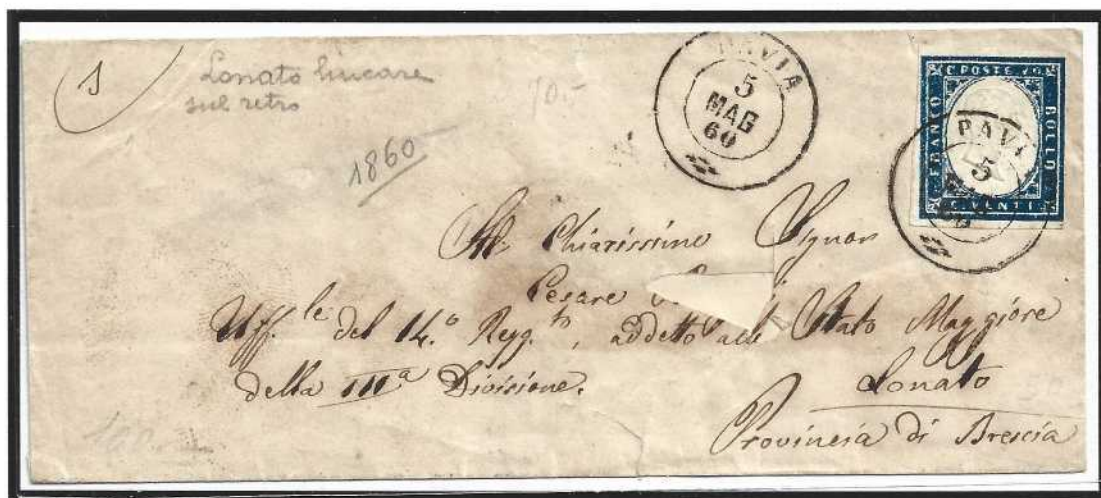 1
Lonato lineare
sul retro
1860
PAVIA
5
MAG
60
C. POSTE 20
FRANCO
BOLLO
PAVI
5
Al Chiarissimo Signor
Cesare
Uff.le del 14.º Regg.to, addetto allo Stato Maggiore
della IIIª Divisione.
Lonato
Provincia di Brescia
100